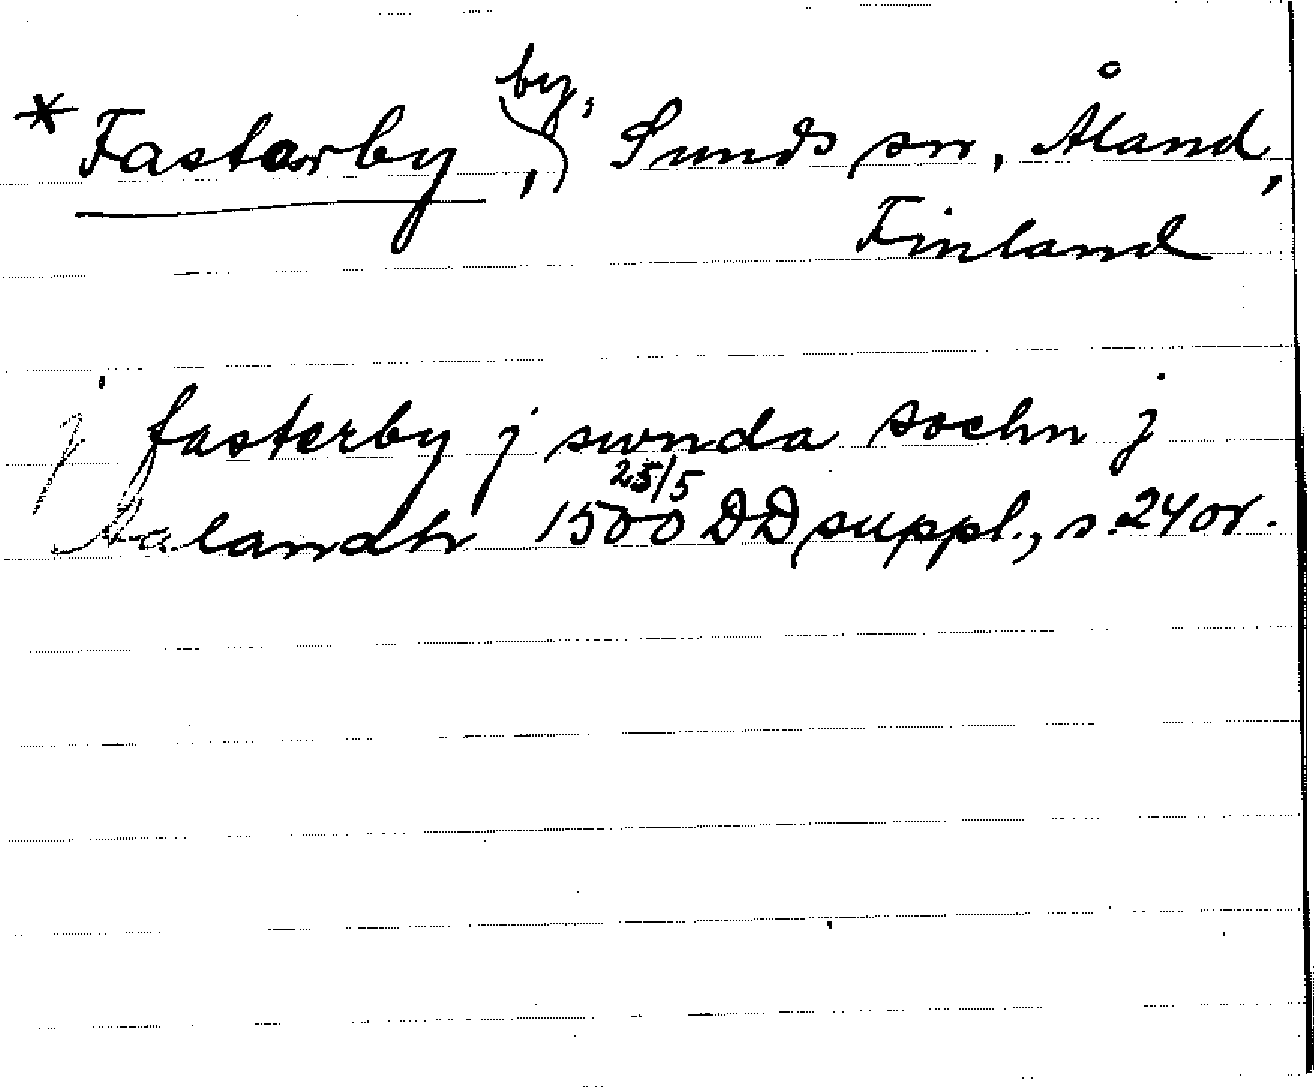 * Fastarby, by, Sunds sn, Åland,
Finland
j fasterby j swnda sochn j
Aalandh 1500 25/5 DD suppl., s. 24 or.